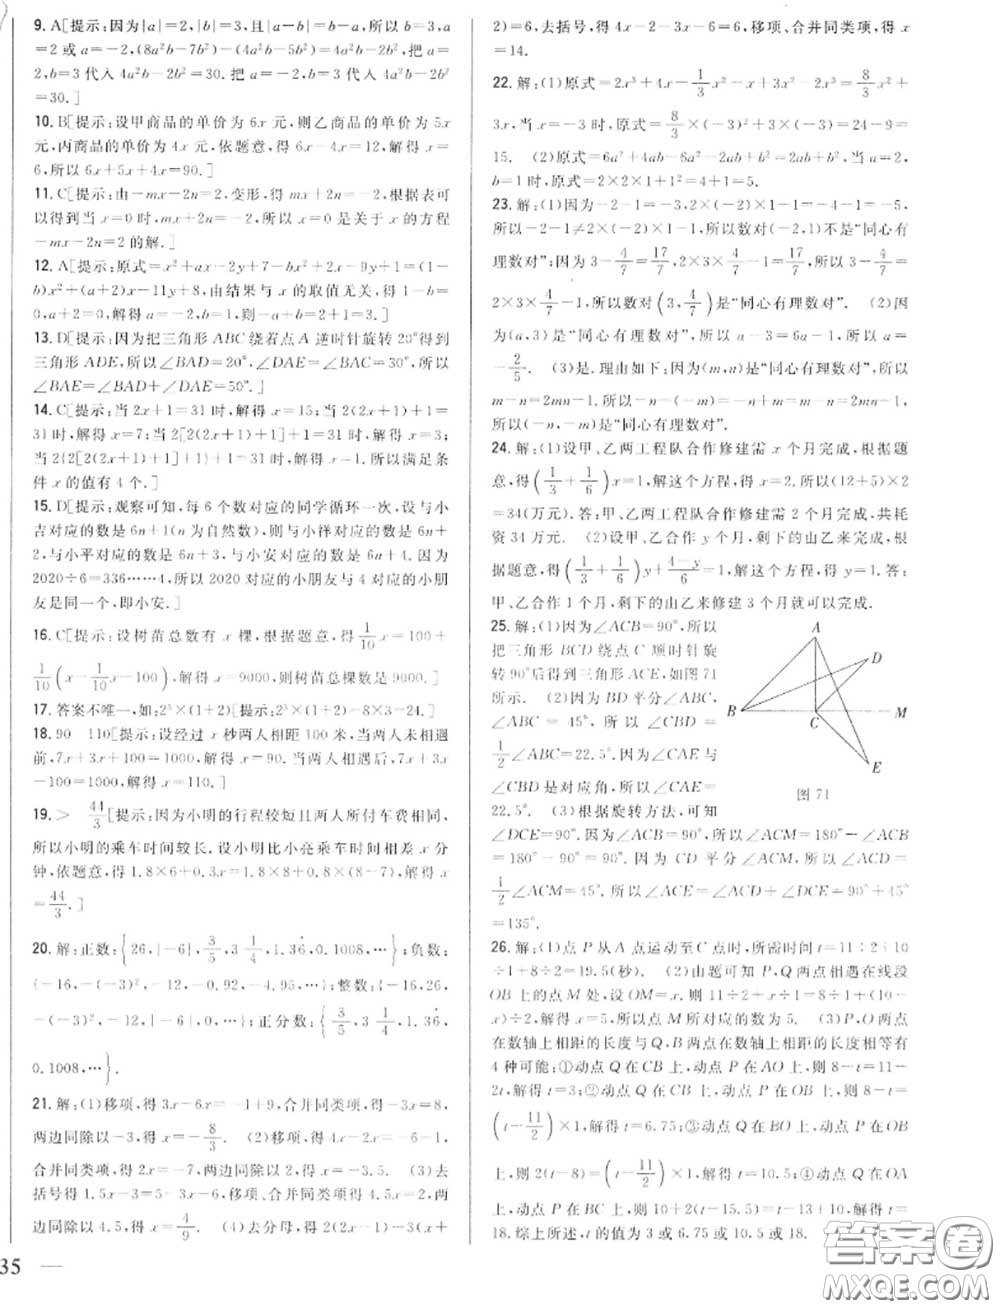 9. A[提示:因为|a|=2,|b|=3,且|a-b|=b-a,所以b=3,a
=2或a=-2,(8a²b-7b²)-(4a²b-5b²)=4a²b-2b²,把a=
2,b=3代入4a²b-2b²=30.把a=-2,b=3代入4a²b-2b²
=30.]
10. B[提示:设甲商品的单价为6x元,则乙商品的单价为5x
元,丙商品的单价为4x元,依题意,得6x-4x=12,解得x=
6,所以6x+5x+4x=90.]
11. C[提示:由-mx-2n=2,变形,得mx+2n=-2,根据表可
以得到当x=0时,mx+2n=-2,所以x=0是关于x的方程
-mx-2n=2的解.]
12. A[提示:原式=x²+ax-2y+7-bx²+2x-9y+1=(1-
b)x²+(a+2)x-11y+8,由结果与x的取值无关,得1-b=
0,a+2=0,解得a=-2,b=1,则-a+b=2+1=3.]
13. D[提示:因为把三角形ABC绕着点A逆时针旋转20°得到
三角形ADE,所以∠BAD=20°,∠DAE=∠BAC=30°,所以
∠BAE=∠BAD+∠DAE=50°.]
14. C[提示:当2x+1=31时,解得x=15;当2(2x+1)+1=
31时,解得x=7;当2[2(2x+1)+1]+1=31时,解得x=3;
当2{2[2(2x+1)+1]+1}+1=31时,解得x=1.所以满足条
件x的值有4个.]
15. D[提示:观察可知,每6个数对应的同学循环一次,设与小
吉对应的数是6n+1(n为自然数),则与小祥对应的数是6n+
2,与小平对应的数是6n+3,与小安对应的数是6n+4.因为
2020÷6=336……4,所以2020对应的小朋友与4对应的小朋
友是同一个,即小安.]
16. C[提示:设树苗总数有x棵,根据题意,得1/10 x=100+
1/10(x-1/10 x-100),解得x=9000,则树苗总棵数是9000.]
17. 答案不唯一,如:2³×(1+2)[提示:2³×(1+2)=8×3=24.]
18. 90 110[提示:设经过x秒两人相距100米,当两人未相遇
前,7x+3x+100=1000,解得x=90.当两人相遇后,7x+3x-
100=1000,解得x=110.]
19. > 44/3[提示:因为小明的行程较短且两人所付车费相同,
所以小明的乘车时间较长.设小明比小亮乘车时间相差x分
钟,依题意,得1.8×6+0.3x=1.8×8+0.8×(8-7),解得x=
44/3.]
20. 解:正数:{26,|-6|,3/5,3 1/4,1.36,0.1008,…};负数:
{-16,-(-3)²,-12,-0.92,-4.95,…};整数:{-16,26,
-(-3)²,-12,|-6|,0,…};正分数:{3/5,3 1/4,1.36,
0.1008,…}.
21. 解:(1)移项,得3x-6x=-1+9,合并同类项,得-3x=8,
两边同除以-3,得x=-8/3. (2)移项,得4x-2x=-6-1,
合并同类项,得2x=-7,两边同除以2,得x=-3.5. (3)去
括号得1.5x-3=5-3x-6,移项、合并同类项,得4.5x=2,两
边同除以4.5,得x=4/9. (4)去分母,得2(2x-1)-3(x+
35
2)=6,去括号,得4x-2-3x-6=6,移项、合并同类项,得x
=14.
22. 解:(1)原式=2x³+4x-1/3x²-x+3x²-2x³=8/3x²+
3x,当x=-3时,原式=8/3×(-3)²+3×(-3)=24-9=
15. (2)原式=6a²+4ab-6a²-2ab+b²=2ab+b².当a=2,
b=1时,原式=2×2×1+1²=4+1=5.
23. 解:(1)因为-2-1=-3,2×(-2)×1-1=-4-1=-5,
所以-2-1≠2×(-2)×1-1,所以数对(-2,1)不是“同心有
理数对”;因为3-4/7=17/7,2×3×4/7-1=17/7,所以3-4/7=
2×3×4/7-1,所以数对(3,4/7)是“同心有理数对”. (2)因
为(a,3)是“同心有理数对”,所以a-3=6a-1,所以a=
-2/5. (3)是.理由如下:因为(m,n)是“同心有理数对”,所以
m-n=2mn-1.所以-n-(-m)=-n+m=m-n=2mn-1,
所以(-n,-m)是“同心有理数对”.
24. 解:(1)设甲、乙两工程队合作修建需x个月完成,根据题
意,得(1/3+1/6)x=1,解这个方程,得x=2.所以(12+5)×2
=34(万元).答:甲、乙两工程队合作修建需2个月完成,共耗
资34万元. (2)设甲、乙合作y个月,剩下的由乙来完成.根
据题意,得(1/3+1/6)y+(4-y)/6=1,解这个方程,得y=1.答:
甲、乙合作1个月,剩下的由乙来修建3个月就可以完成.
25. 解:(1)因为∠ACB=90°,所以
把三角形BCD绕点C顺时针旋
转90°后得到三角形ACE,如图71
所示. (2)因为BD平分∠ABC,
∠ABC=45°,所以∠CBD=
1/2∠ABC=22.5°.因为∠CAE与
∠CBD是对应角,所以∠CAE=
22.5°. (3)根据旋转方法,可知
∠DCE=90°.因为∠ACB=90°,所以∠ACM=180°-∠ACB
=180°-90°=90°.因为CD平分∠ACM,所以∠ACD=
1/2∠ACM=45°.所以∠ACE=∠ACD+∠DCE=90°+45°
=135°.
A
D
B
C
M
E
图71
26. 解:(1)点P从A点运动至C点时,所需时间t=11÷2+10
÷1+8÷2=19.5(秒). (2)由题可知P,Q两点相遇在线段
OB上的点M处,设OM=x,则11÷2+x÷1=8÷1+(10-
x)÷2,解得x=5,所以点M所对应的数为5. (3)P,O两点
在数轴上相距的长度与Q,B两点在数轴上相距的长度相等有
4种可能:①动点Q在CB上,动点P在AO上,则8-t=11-
2t,解得t=3;②动点Q在CB上,动点P在OB上,则8-t=
(t-11/2)×1,解得t=6.75;③动点Q在BO上,动点P在OB
上,则2(t-8)=(t-11/2)×1,解得t=10.5;④动点Q在OA
上,动点P在BC上,则10+2(t-15.5)=t-13+10,解得t=
18.综上所述,t的值为3或6.75或10.5或18.
答案圈
MXQE.COM